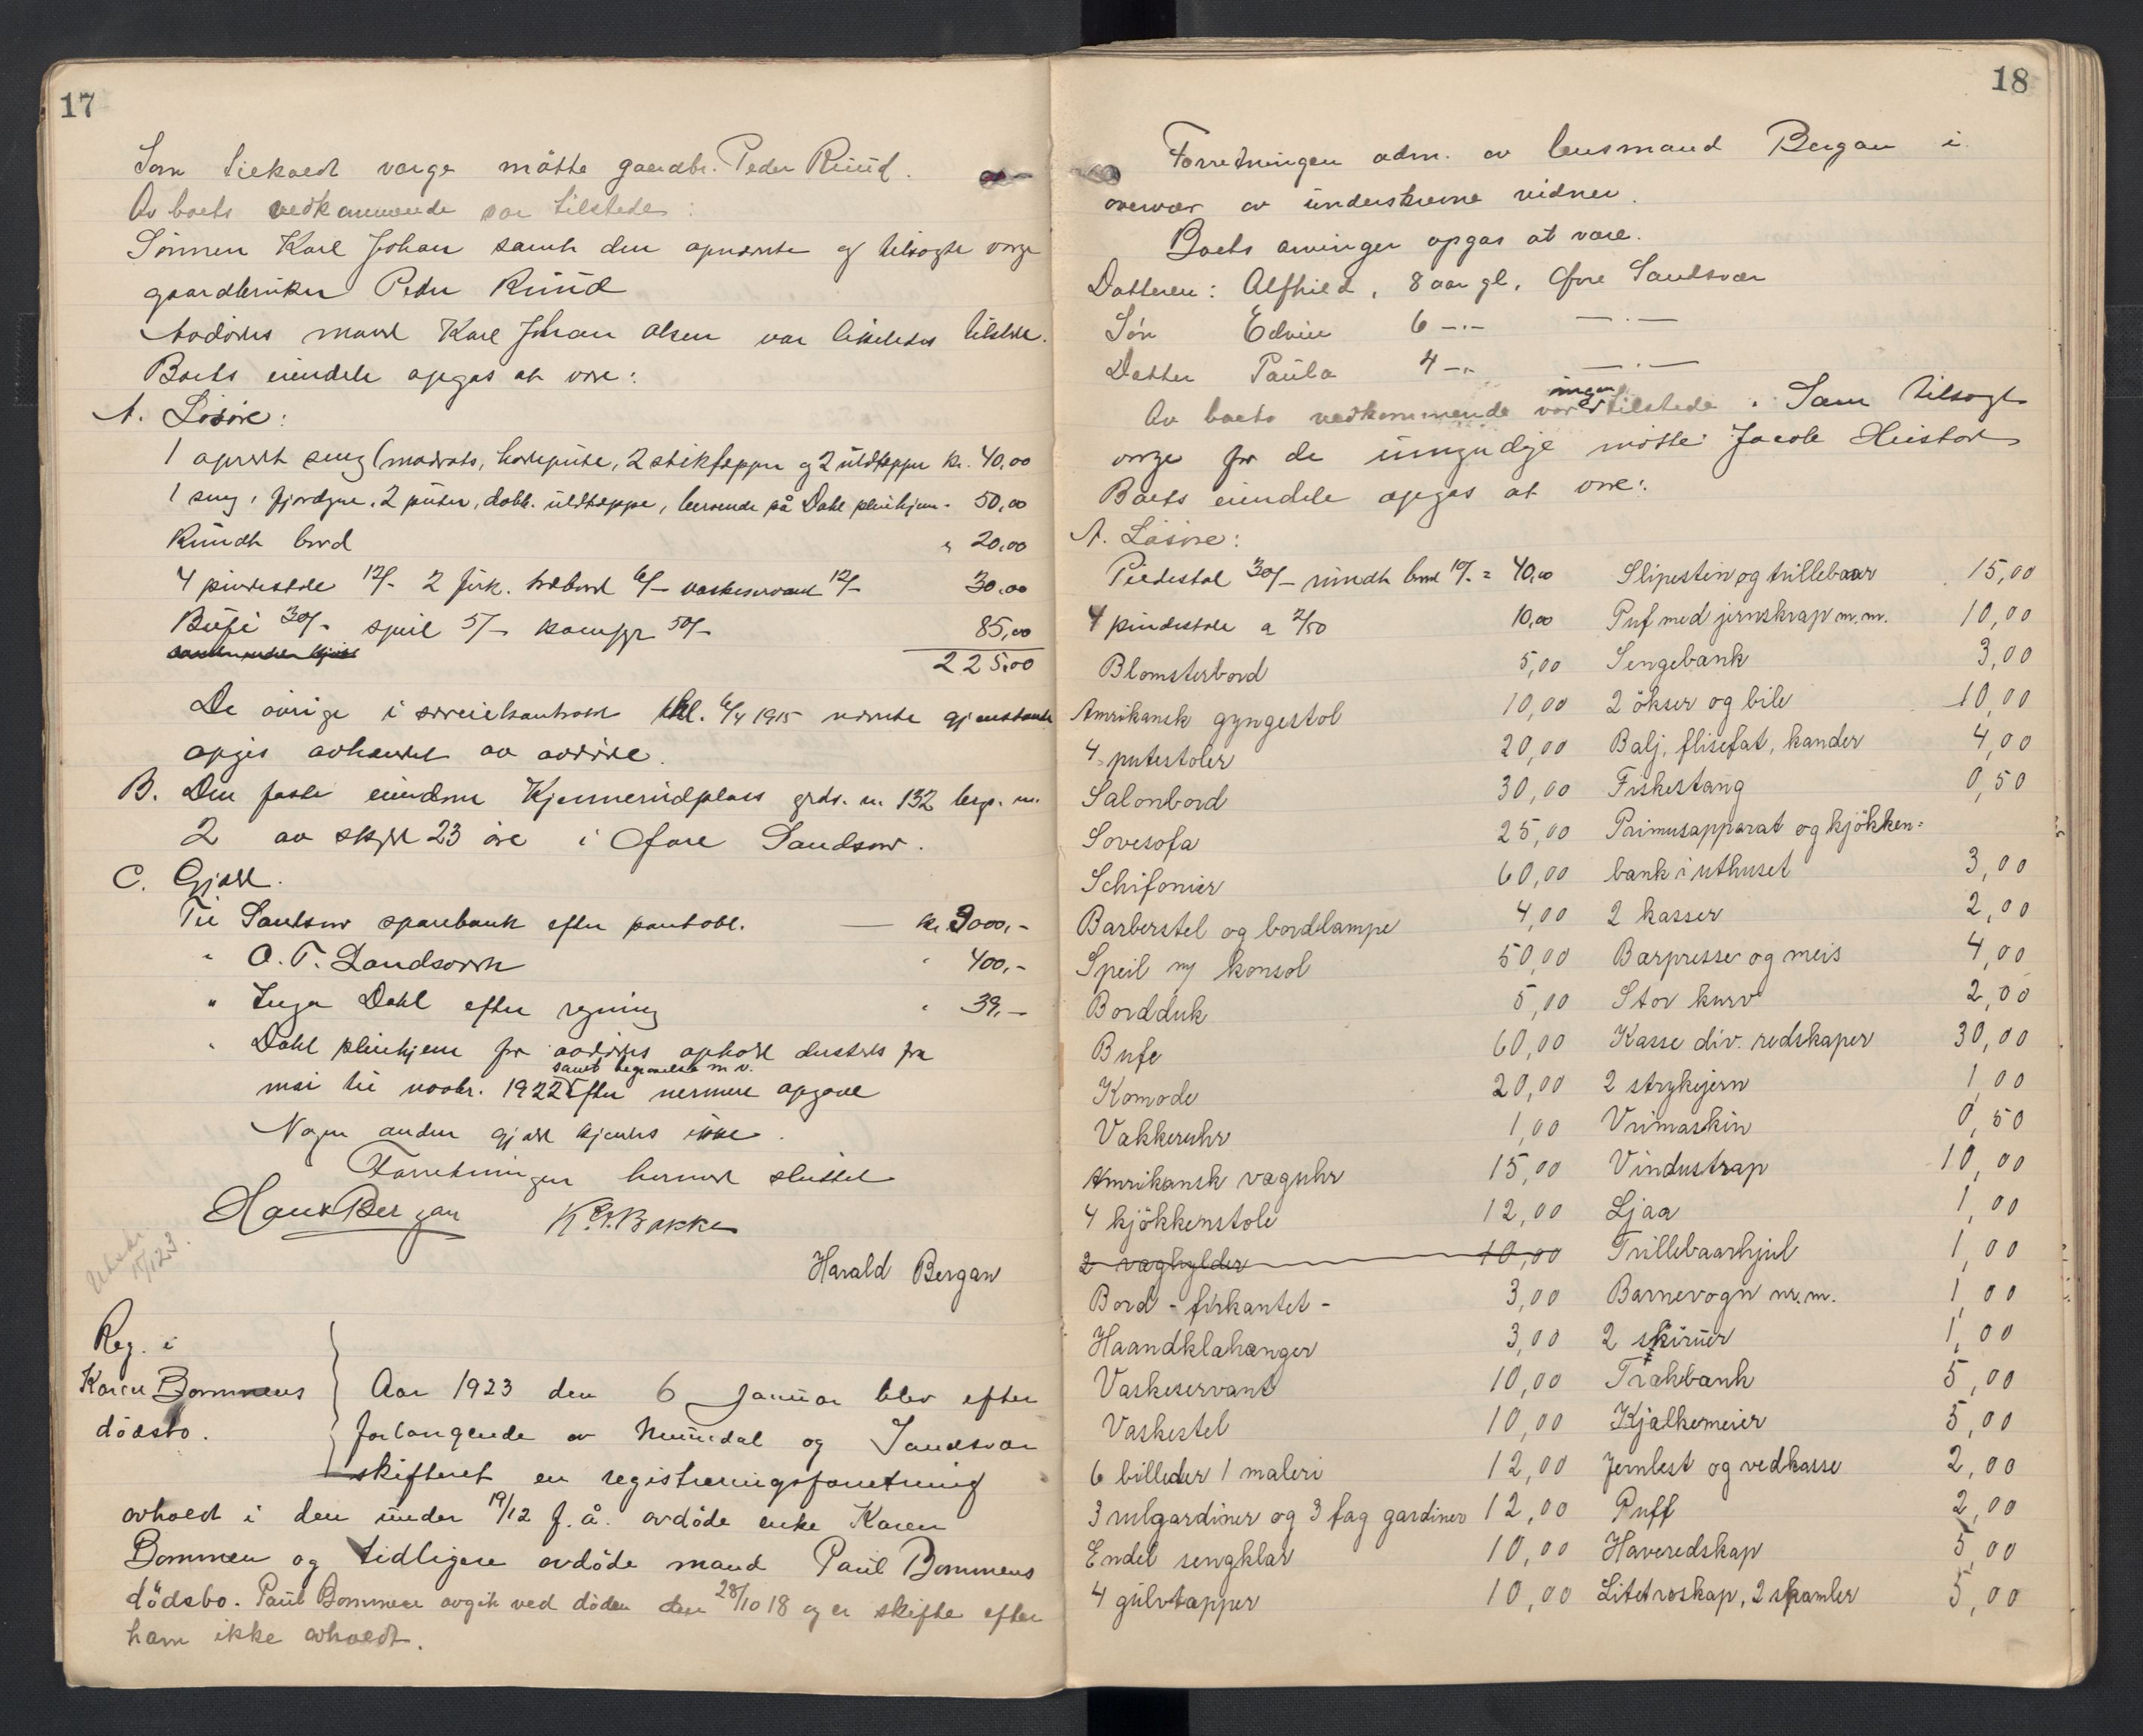 17
Som tilkaldt verge møtte gaardbr. Peder Ruud.
Av boets vedkommende var tilstede:
Sønnen Karl Johan samt den opnævnte og tilsagte verge
gaardbruker Peder Ruud
Avdødes mand Karl Johan Olsen var likeledes tilstede.
Boets eiendele opgas at være:
A. Løsøre:
1 opredt seng (madrats, hodepute, 2 stiktepper og 2 uldtepper kr. 40,00
1 seng, fjordyne, 2 puter, dobb. uldteppe, beroende på Dahl pleiehjem - 50,00
Rundt bord " 20,00
4 pindestole 12/- 2 firk. træbord 6/- vaskeservant 12/- 30,00
Bufé 30/- speil 5/- komfyr 50/- 85,00
225,00
De øvrige i særeiekontrakt tkl. 6/4 1915 nævnte gjenstande
opgis avhændet av avdøde.
B. Den faste eiendom Kjennerudplass grds. nr. 132 brgs. nr.
2 av skyld 23 øre i Øvre Sandsvær.
C. Gjæld.
Til Sandsvær sparebank efter pantobl. — kr. 3000,-
" O. T. Landsverk " 400,-
" Inga Dahl efter regning " 39,-
" Dahl pleiehjem for avdødes ophold dersteds fra
samt begravelse m v.
mai til novbr. 1922 efter nermere opgave
Nogen anden gjæld kjendes ikke.
Forretningen hermed sluttet
Hans Bergan K. O. Bakke
Harald Bergan
Reg. i
Karen Bommens
dödsbo.
Aar 1923 den 6 januar blev efter
forlangende av Numedal og Sandsvær
skifteret en registreringsforretning
avholdt i den under 19/12 f. å. avdöde enke Karen
Bommen og tidligere avdöde mand Paul Bommens
dödsbo. Paul Bommen avgik ved döden den 28/10 18 og er skifte efter
ham ikke avholdt.
18
Forretningen adm. av lensmand Bergan i
overvær av underskrevne vidner.
Boets arvinger opgas at være.
Datteren: Alfhild, 8 aar gl, Øvre Sandsvær
Søn Edvin 6 -.- -.-
Datter Paula 4 -.- -.-
ingen
Av boets vedkommende var tilstede. Som tilsagt
verge for de umyndige møtte Jacob Heistad
Boets eiendele opgas at være:
A. Løsøre:
Piedestal 30/- rundt bord 10/- = 40,00 Slipesten og trillebaar 15,00
4 pindestole a 2/50 10,00 Puf med jernskrap m.m. 10,00
Blomsterbord 5,00 Sengebank 3,00
Amrikansk gyngestol 10,00 2 ökser og bile 10,00
4 putestoler 20,00 Balj, flisefat, kander 4,00
Salonbord 30,00 Fiskestang 0,50
Sovesofa 25,00 Primusapparat og kjökken=
Schifonier 60,00 bank i uthuset 3,00
Barberstel og bordlampe 4,00 2 kasser 2,00
Speil m/ konsol 50,00 Bærpresse og meis 4,00
Bordduk 5,00 Stor kurv 2,00
Bufe 60,00 Kasse div. redskaper 30,00
Komode 20,00 2 strykejern 1,00
Vækkeruhr 1,00 Vrimaskin 0,50
Amrikansk væguhr 15,00 Vindustrap 10,00
4 kjökkenstole 12,00 Ljaa 1,00
2 væghylder 10,00 Trillebaarhjul 1,00
Bord - firkantet - 3,00 Barnevogn m.m. 1,00
Haandklæhænger 3,00 2 skiruer 1,00
Vaskeservant 10,00 Trækbænk 5,00
Vaskestel 10,00 Kjælkemeier 5,00
6 billeder 1 maleri 12,00 Jernlest og vedkasse 2,00
3 rulgardiner og 3 fag gardiner 12,00 Puff 2,00
Endel sengklær 10,00 Haveredskap 5,00
4 gulvtæpper 10,00 Litetroskap, 2 skamler 5,00